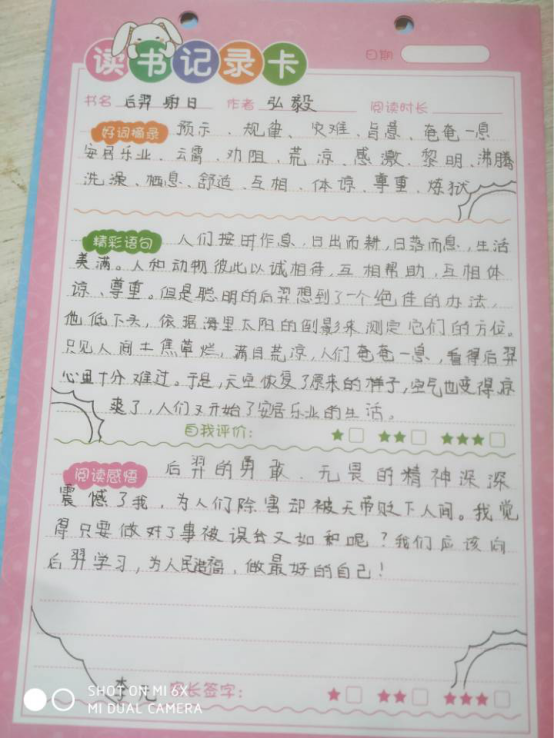 读书记录卡
日期
书名 后羿射日 作者 弘毅 阅读时长
好词摘录 预示、规律、灾难、旨意、奄奄一息
安居乐业、云霄、劝阻、荒凉、感激、黎明、沸腾
洗澡、栖息、舒适、互相、体谅、尊重、炼狱
精彩语句 人们按时作息,日出而耕,日落而息,生活
美满。人和动物彼此以诚相待,互相帮助,互相体
谅、尊重。但是聪明的后羿想到了一个绝佳的办法,
他低下头,依据海里太阳的倒影来测定它们的方位。
只见人间土焦草烂,满目荒凉,人们奄奄一息,看得后羿
心里十分难过。于是,天空恢复了原来的样子,空气也变得凉
爽了,人们又开始了安居乐业的生活。
自我评价: ★□ ★★□ ★★★□
阅读感悟 后羿的勇敢、无畏的精神深深
震憾了我,为人们除害却被天帝贬下人间。我觉
得只要做好了事被误会又如和呢?我们应该向
后羿学习,为人民造福,做最好的自己!
家长签字: ★□ ★★□ ★★★□
SHOT ON MI 6X
MI DUAL CAMERA